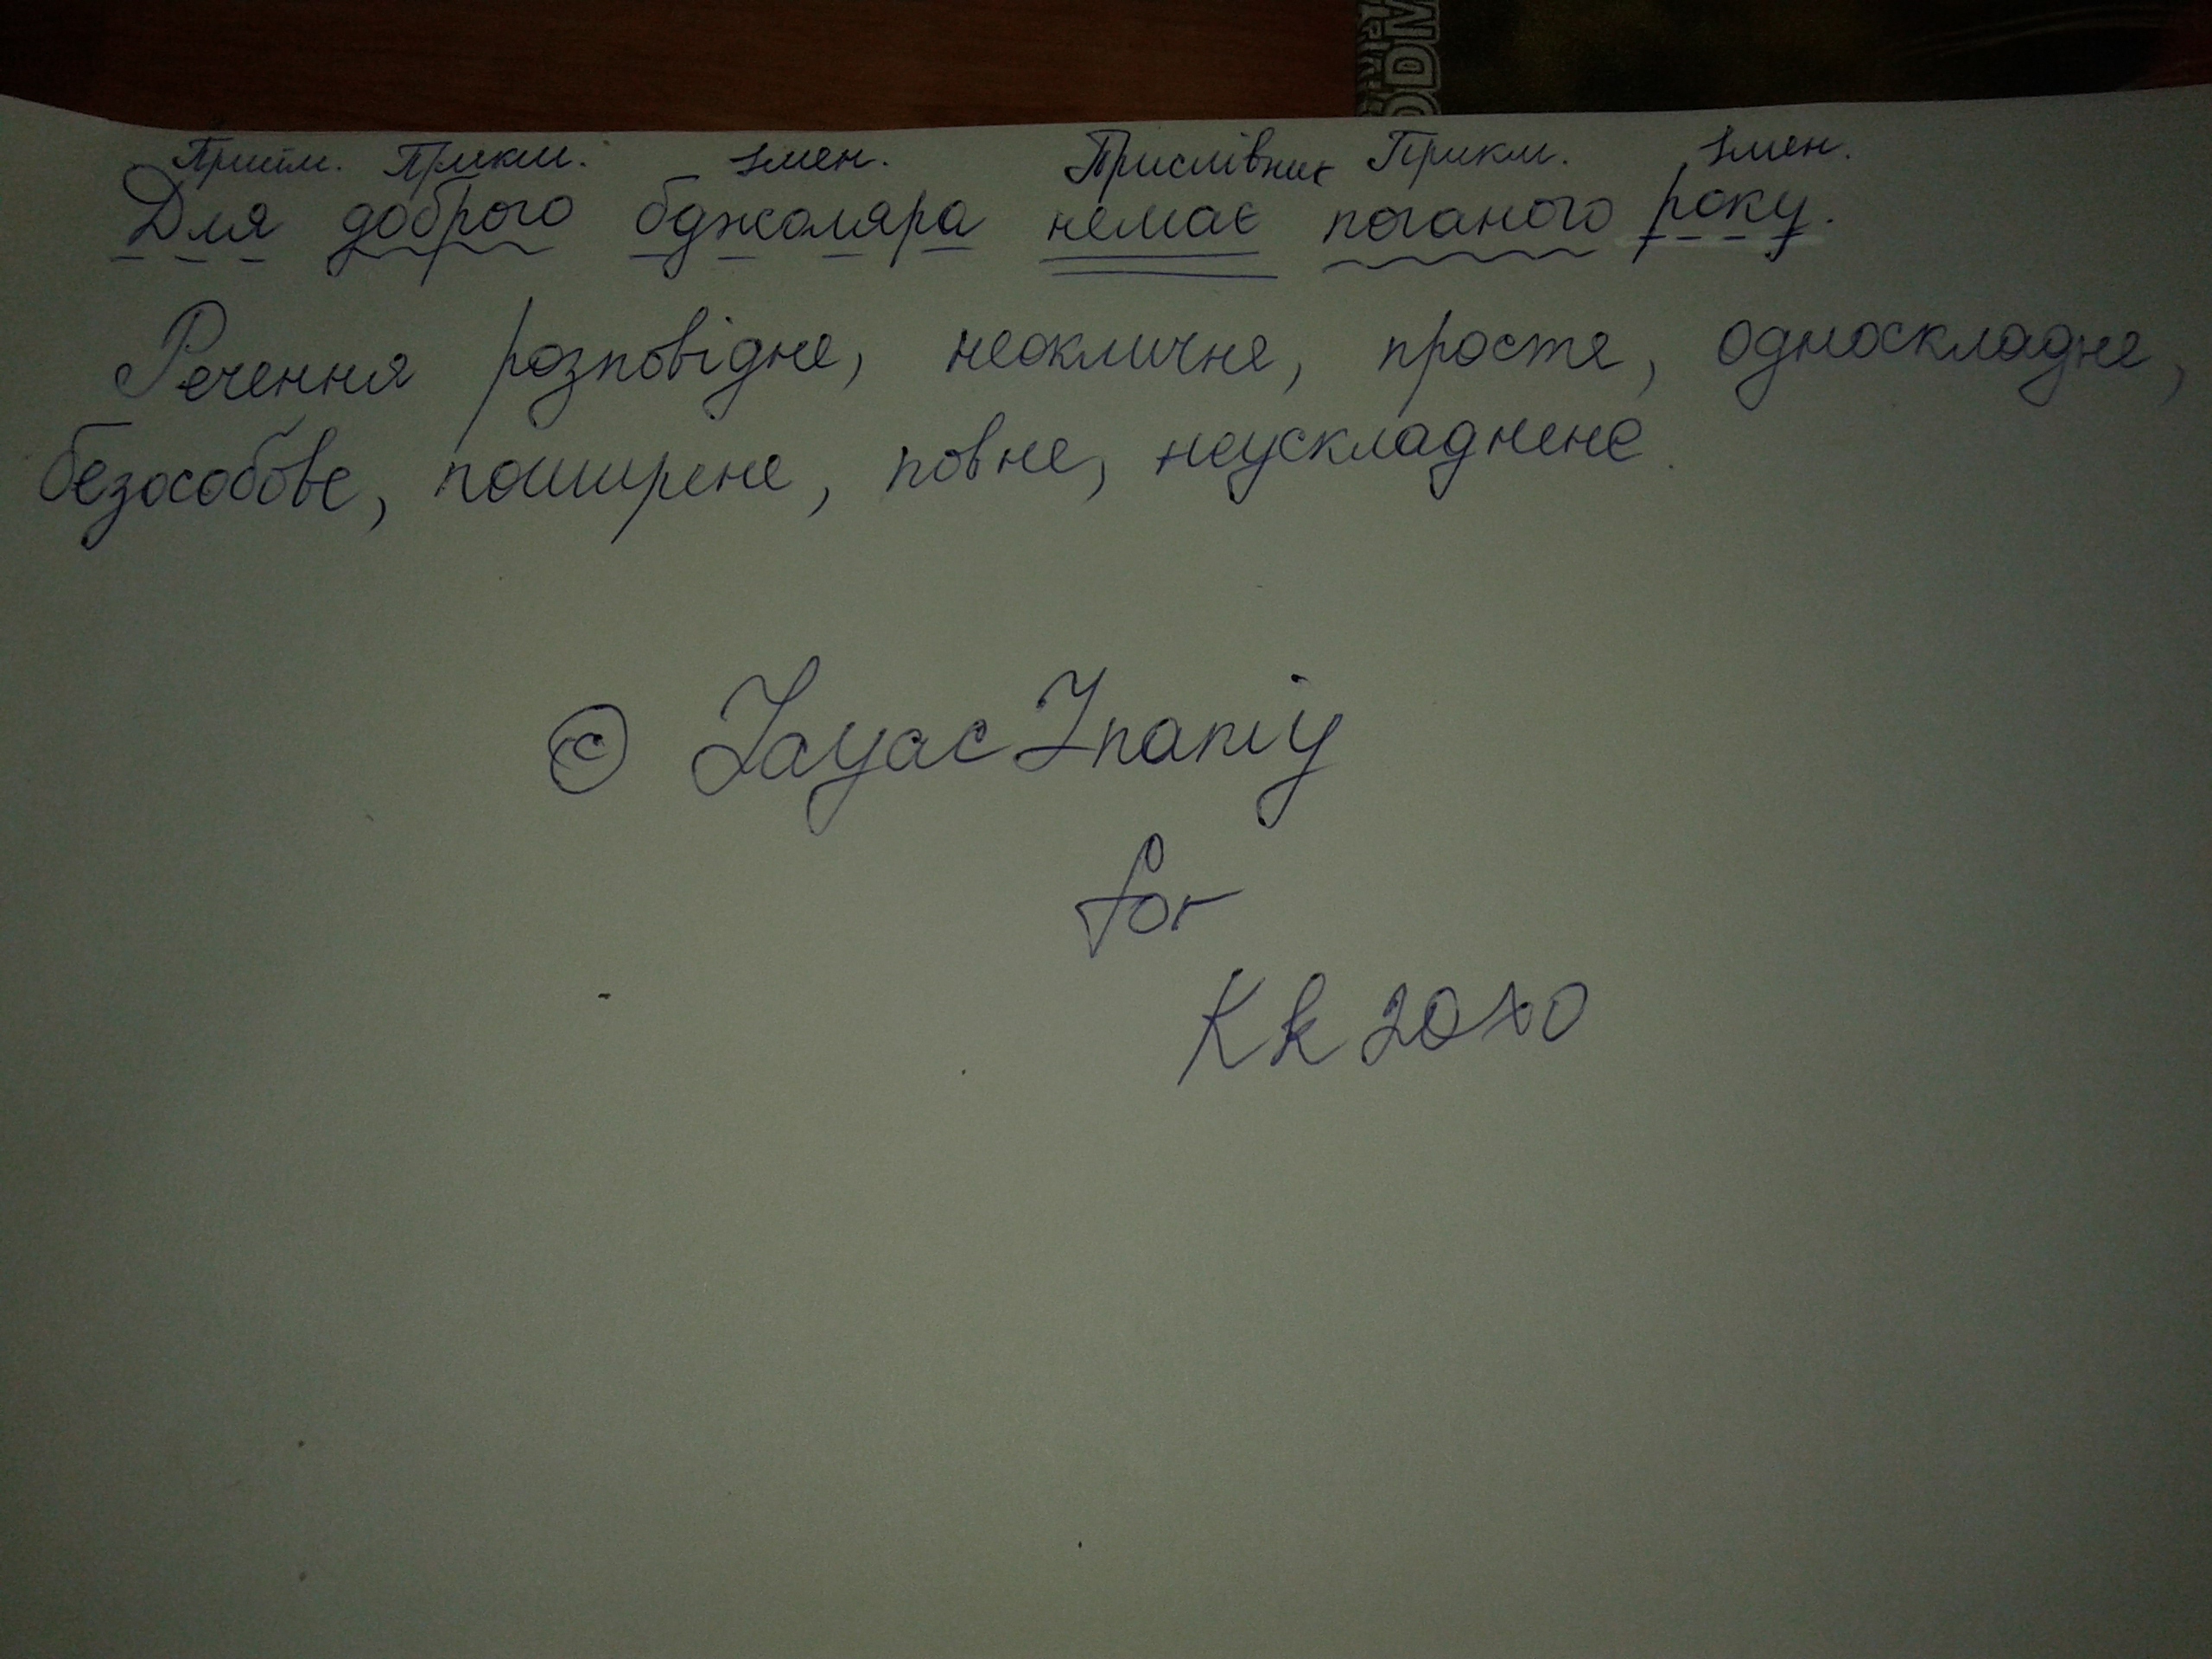 Прийм. Прикм. Імен. Прислівник Прикм. Імен.
Для доброго бджоляра немає поганого року.
Речення розповідне, неокличне, просте, односкладне,
безособове, поширене, повне, неускладнене.
©
for
Kk20